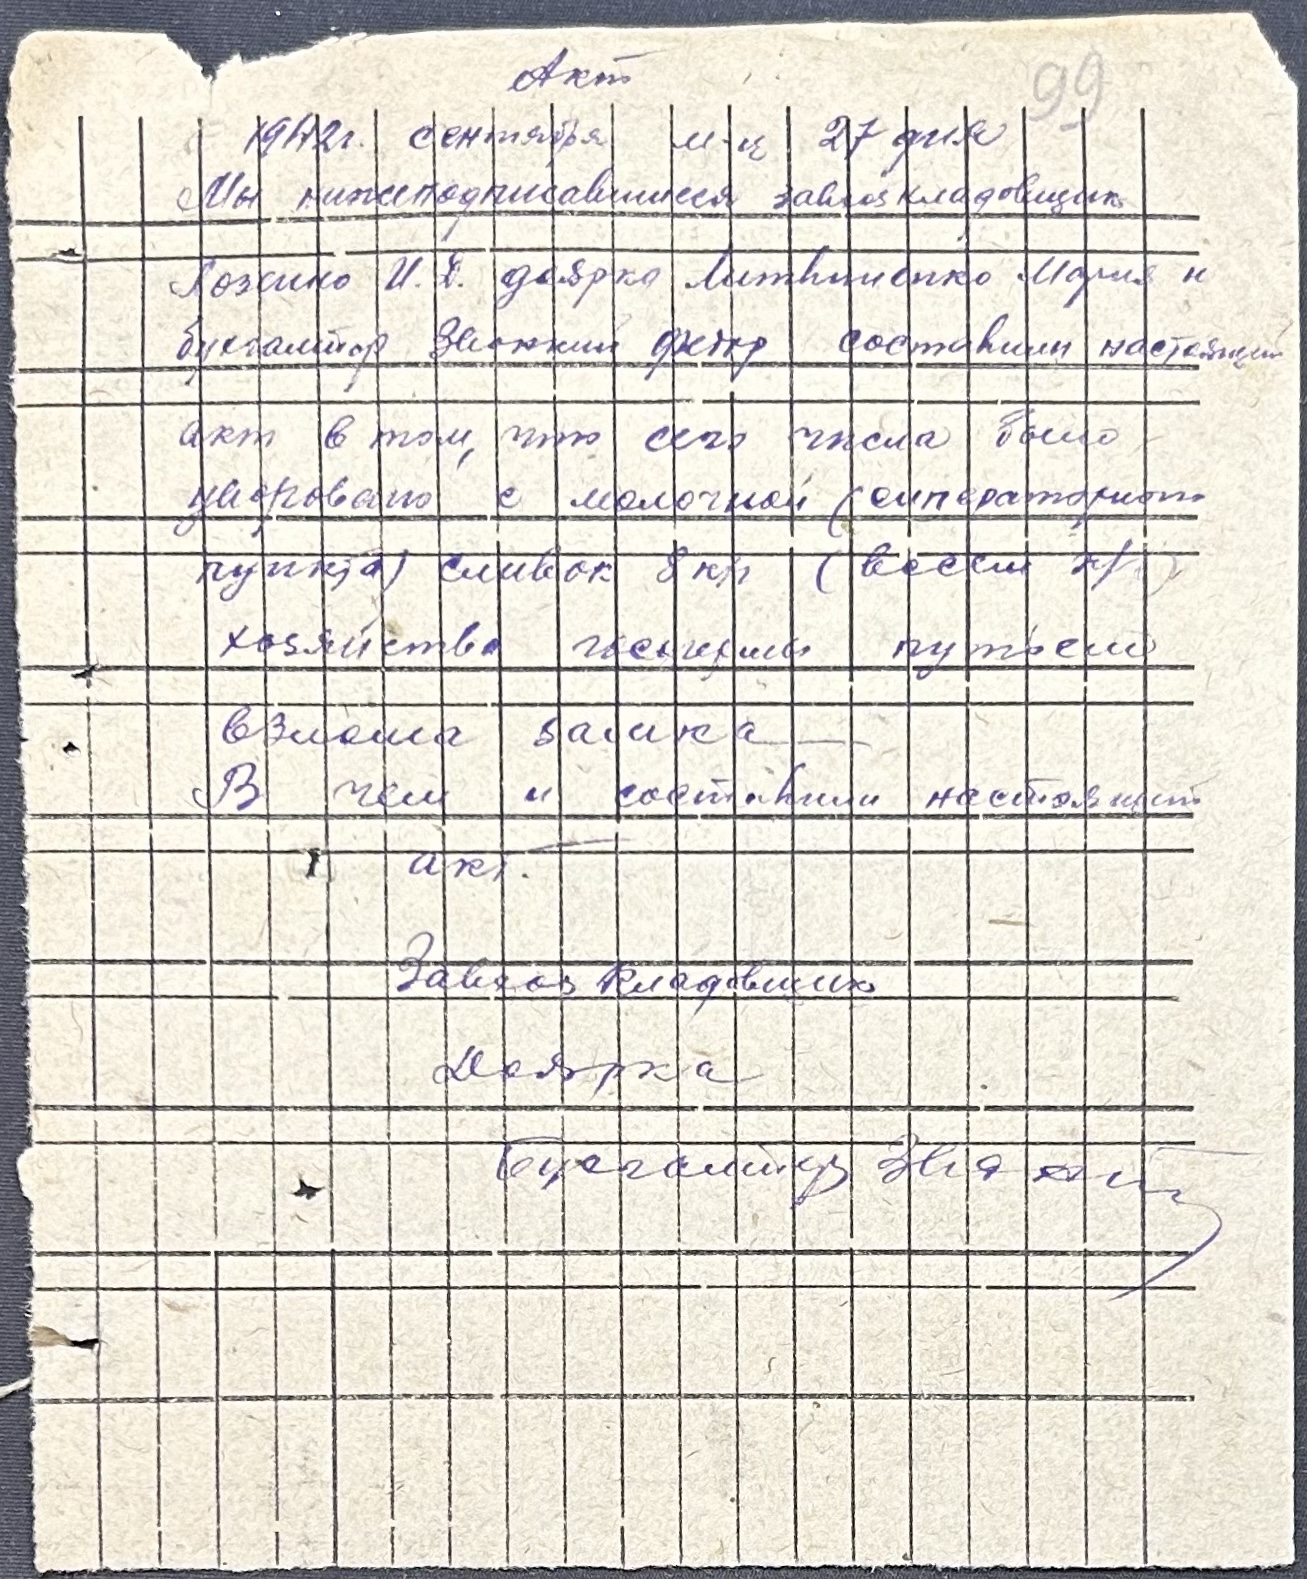 Акт
99
1942г. сентября м-ц 27 дня
Мы нижеподписавшиеся завхоз кладовщик
Ложенко И. Д. доярка Литвиненко Мария и
бухгалтер Звонкий Фёдр составили настоящий
акт в том, что сего числа было
уворовано с молочной (сипараторного
пункта) сливок 8 кгр (весем к/г)
хозяйства путьём
взлома замка
В чем и составили настоящий
акт.
Завхоз кладовщик
Доярка
Бухгалтер